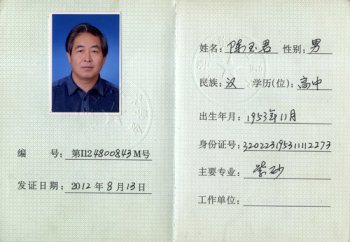 编 号: 第1124800843M号
发证日期: 2012年8月13日
姓名: 陈玉君 性别: 男
民族: 汉 学历(位): 高中
出生年月: 1953年11月
身份证号: 320223195311112273
主要专业: 紫砂
工作单位: